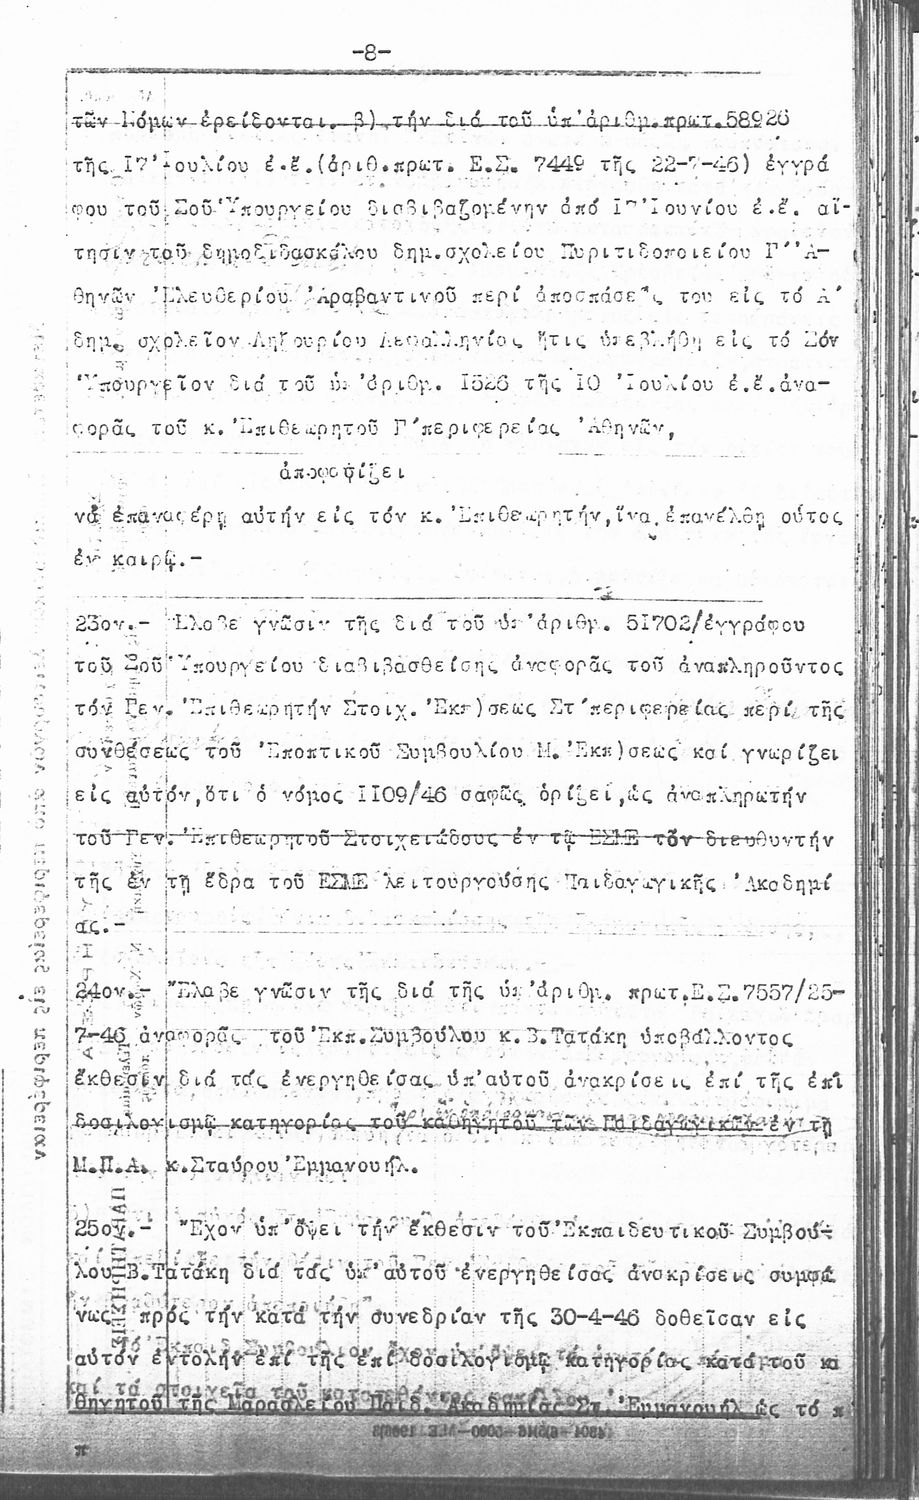 -8-
τῶν Νόμων ἐρείδονται. β) τήν διά τοῦ ὑπ'ἀριθμ.πρωτ.58926
τῆς I7 Ἰουλίου ἐ.ἔ.(ἀριθ.πρωτ. Ε.Σ. 7449 τῆς 22-7-46) ἐγγρά
φου τοῦ Σοῦ Ὑπουργείου διαβιβαζομένην ἀπό I7 Ἰουνίου ἐ.ἔ. αἴ-
τησιν τοῦ δημοδιδασκάλου δημ.σχολείου Πυριτιδοποιείου Γ''Ἀ-
θηνῶν Ἐλευθερίου Ἀραβαντινοῦ περί ἀποσπάσεώς του εἰς τό Α'
δημ. σχολεῖον Ληξουρίου Κεφαλληνίας ἥτις ὑπεβλήθη εἰς τό Σόν
Ὑπουργεῖον διά τοῦ ὑπ'ἀριθμ. I526 τῆς IO Ἰουλίου ἐ.ἔ.ἀνα-
φορᾶς τοῦ κ.Ἐπιθεωρητοῦ Γ'περιφερείας Ἀθηνῶν,
ἀποφαψίζει
νά ἐπαναφέρῃ αὐτήν εἰς τόν κ. Ἐπιθεωρητήν,ἵνα ἐπανέλθῃ οὗτος
ἐν καιρῷ.-
23ον.- Ἔλαβε γνῶσιν τῆς διά τοῦ ὑπ'ἀριθμ. 5I702/ἐγγράφου
τοῦ Σοῦ Ὑπουργείου διαβιβασθείσης ἀναφορᾶς τοῦ ἀναπληροῦντος
τόν Γεν. Ἐπιθεωρητήν Στοιχ. Ἐκπ)σεως Στ'περιφερείας περί τῆς
συνθέσεως τοῦ Ἐποπτικοῦ Συμβουλίου Μ. Ἐκπ)σεως καί γνωρίζει
εἰς αὐτόν,ὅτι ὁ νόμος II09/46 σαφῶς ὁρίζει,ὡς ἀναπληρωτήν
τοῦ Γεν. Ἐπιθεωρητοῦ Στοιχειώδους ἐν τῷ ΕΣΜΕ τόν διευθυντήν
τῆς ἐν τῇ ἕδρα τοῦ ΕΣΜΕ λειτουργούσης Παιδαγωγικῆς Ἀκαδημί
ας.-
24ον.- Ἔλαβε γνῶσιν τῆς διά τῆς ὑπ'ἀριθμ. πρωτ.Ε.Σ.7557/25-
7-46 ἀναφορᾶς τοῦ Ἐκπ.Συμβούλου κ.Β.Τατάκη ὑποβάλλοντος
ἔκθεσιν διά τάς ἐνεργηθείσας ὑπ'αὐτοῦ ἀνακρίσεις ἐπί τῆς ἐπί
δοσιλογισμῷ κατηγορίας τοῦ καθηγητοῦ τῶν Παιδαγωγικῶν ἐν τῇ
Μ.Π.Α. κ.Σταύρου Ἐμμανουήλ.
25ον.- Ἔχον ὑπ'ὄψει τήν ἔκθεσιν τοῦ Ἐκπαιδευτικοῦ Συμβού-
λου Β.Τατάκη διά τάς ὑπ'αὐτοῦ ἐνεργηθείσας ἀνακρίσεις συμφώ
νως πρός τήν κατά τήν συνεδρίαν τῆς 30-4-46 δοθεῖσαν εἰς
αὐτόν ἐντολήν ἐπί τῆς ἐπί δοσιλογισμῷ κατηγορίας κατά τοῦ κα
θηγητοῦ τῆς Μαρασλείου Παιδ. Ἀκαδημίας Στ. Ἐμμανουήλ ὡς τό π
π